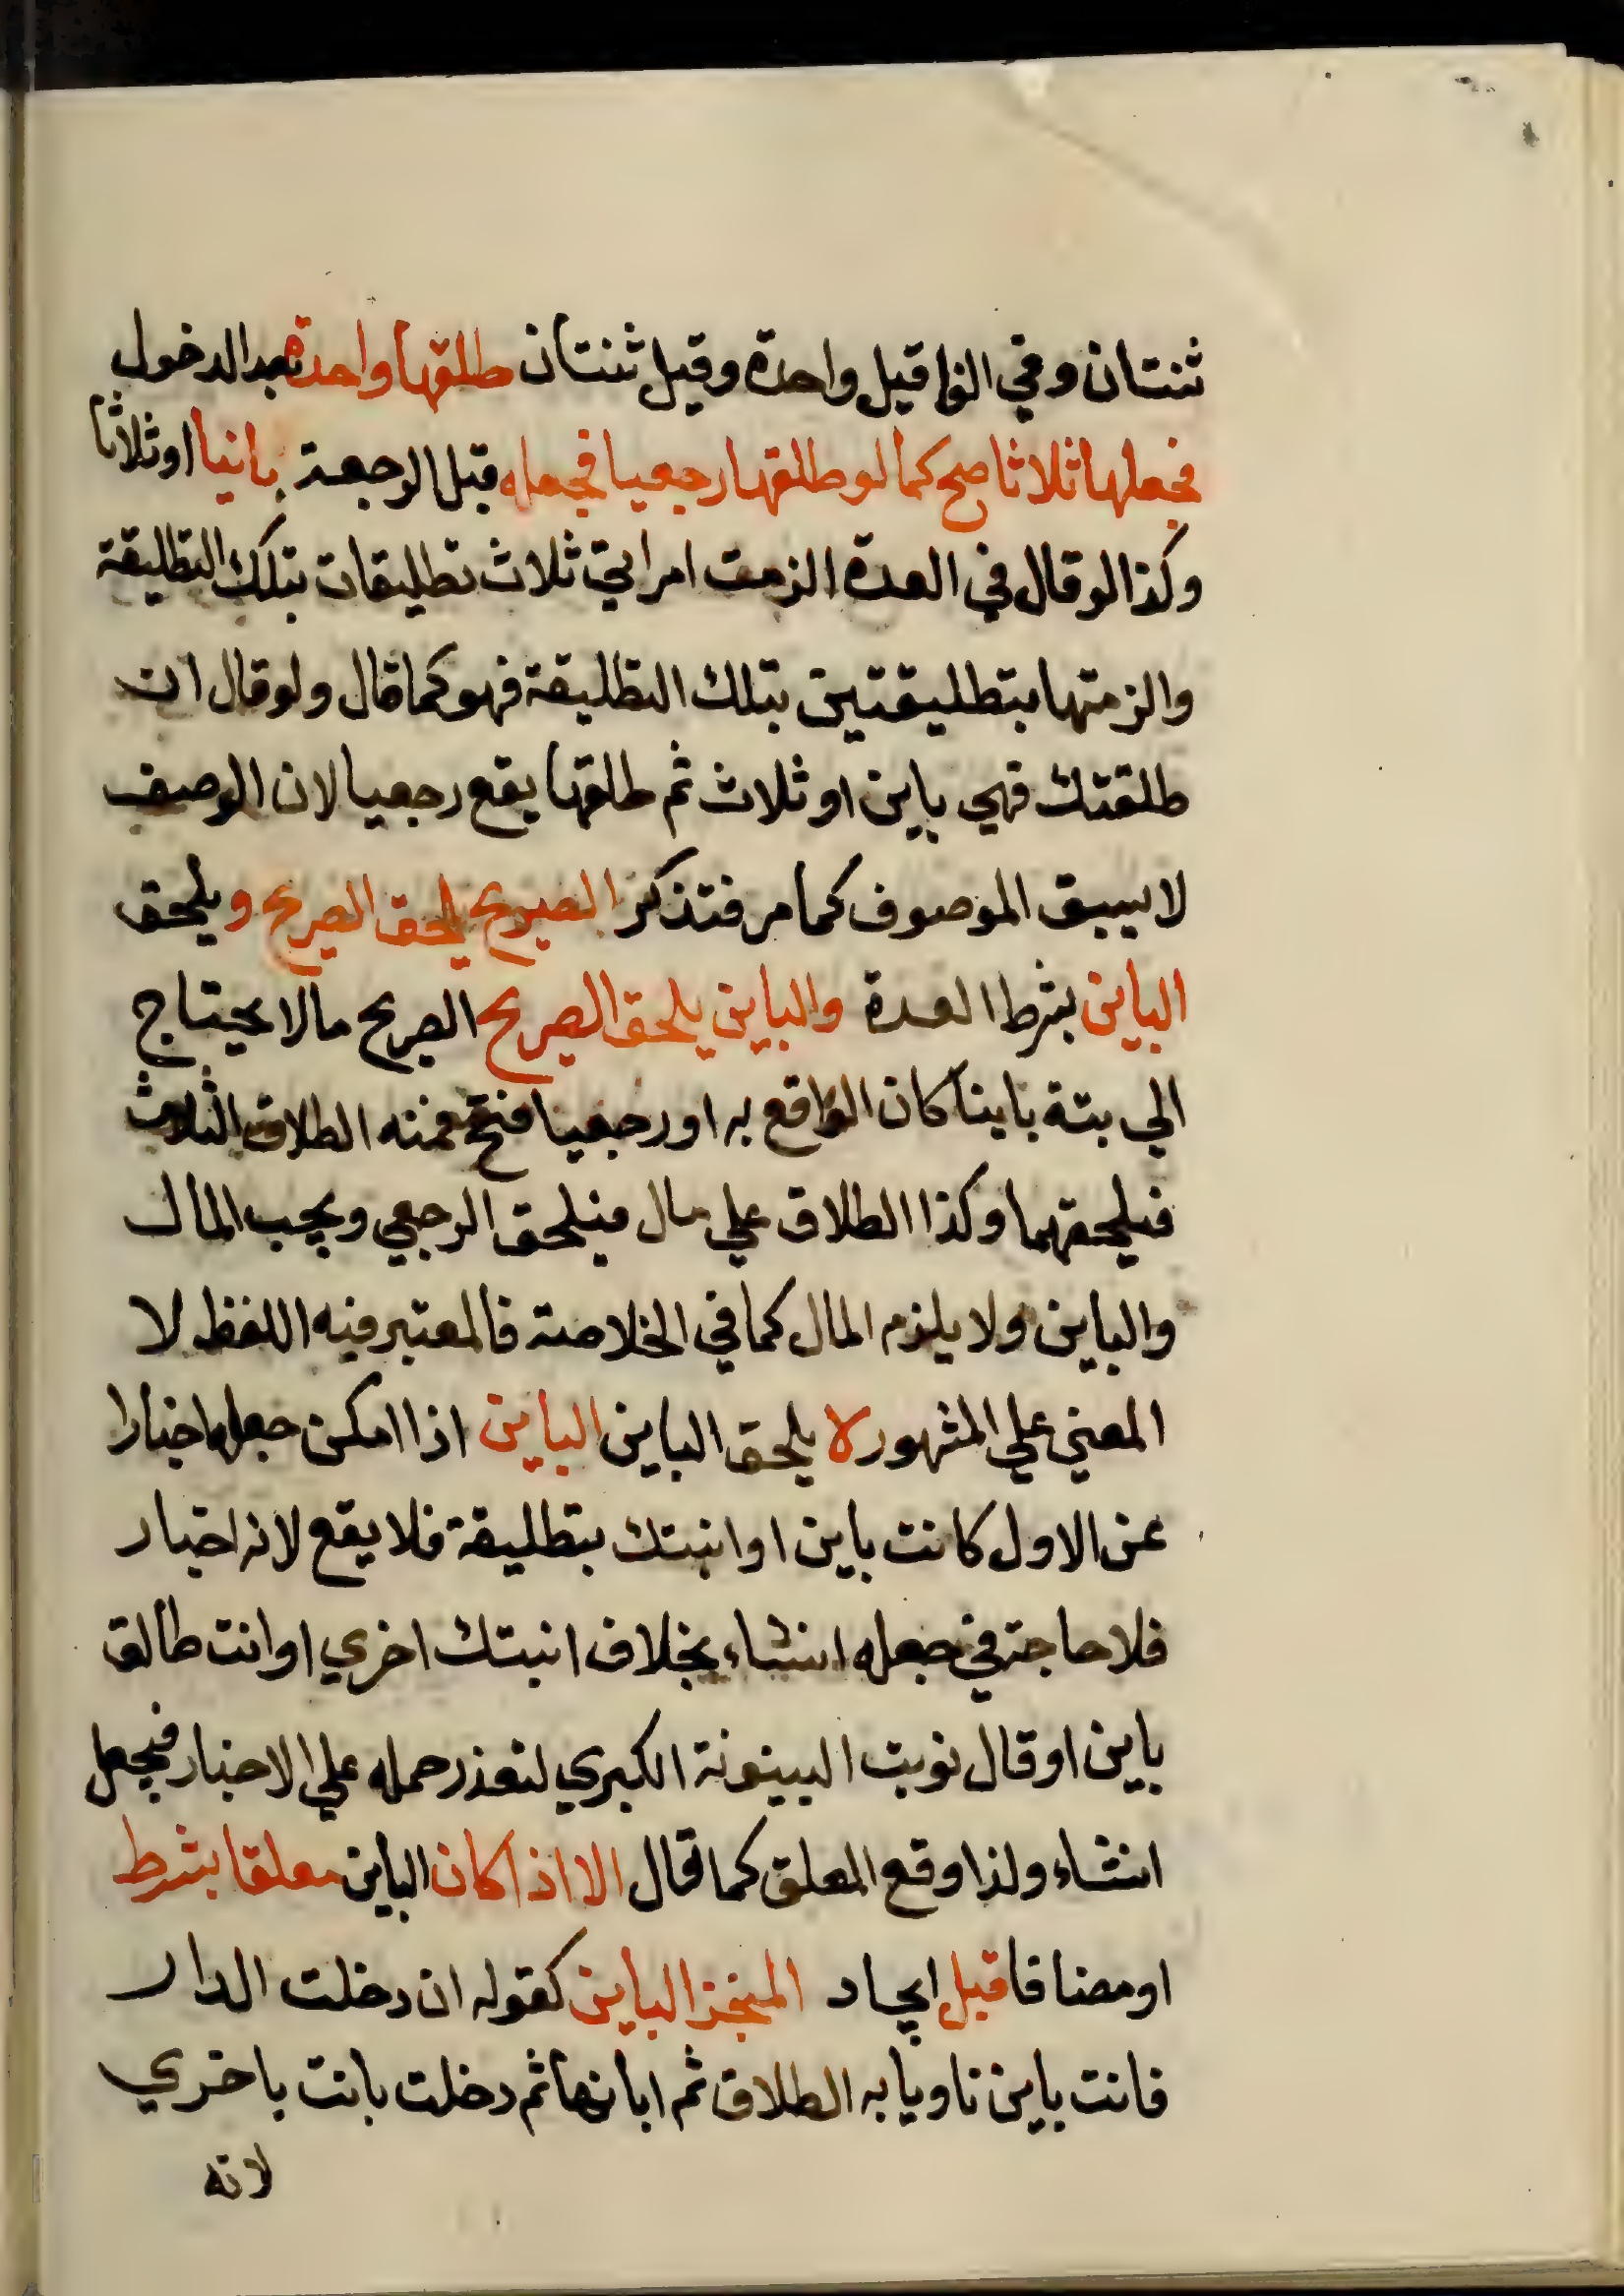 ثنتان وفي الفا قيل واحدة وقيل ثنتان طلقها واحدة بعد الدخول
فجعلها ثلاثا صح كما لو طلقها رجعيا فجعله قبل الرجعة بانيا اوثلاثا
وكذا لو قال في العدة الزمت امراتي ثلاث تطليقات بتلك التطليقة
والزمتها بتطليقتين بتلك التطليقة فهو كما قال ولو قال ان
طلقتك فهي باين او ثلاث ثم طلقها يقع رجعيا لان الوصف
لا يسبق الموصوف كما مر فتذكر الصريح يلحق الصريح ويلحق
الباين بشرط العدة والباين يلحق الصريح الصريح مالا يحتاج
الي بتة باينا كان الواقع به اورجعيا فتح فمنه الطلاق الثلاث
فيلحقهما وكذا الطلاق علي مال فيلحق الرجعي ويجب المال
والباين ولا يلزم المال كما في الخلاصة فالمعتبر فيه اللفظ لا
المعني علي المشهور لا يلحق الباين الباين اذا امكن جعله اخبارا
عن الاول كانت باين او ابنتك بتطليقة فلا يقع لانه اخبار
فلا حاجة في جعله انشاء بخلاف ابنتك اخري او انت طالق
باين او قال نويت البينونة الكبري لتعذر حمله علي الاخبار فيجعل
انشاء ولذا وقع المعلق كما قال الا اذا كان الباين معلقا بشرط
او مضافا قبل ايجاد المنجز الباين كقوله ان دخلت الدار
فانت باين ناويا به الطلاق ثم ابانها ثم دخلت بانت باخري
لانه